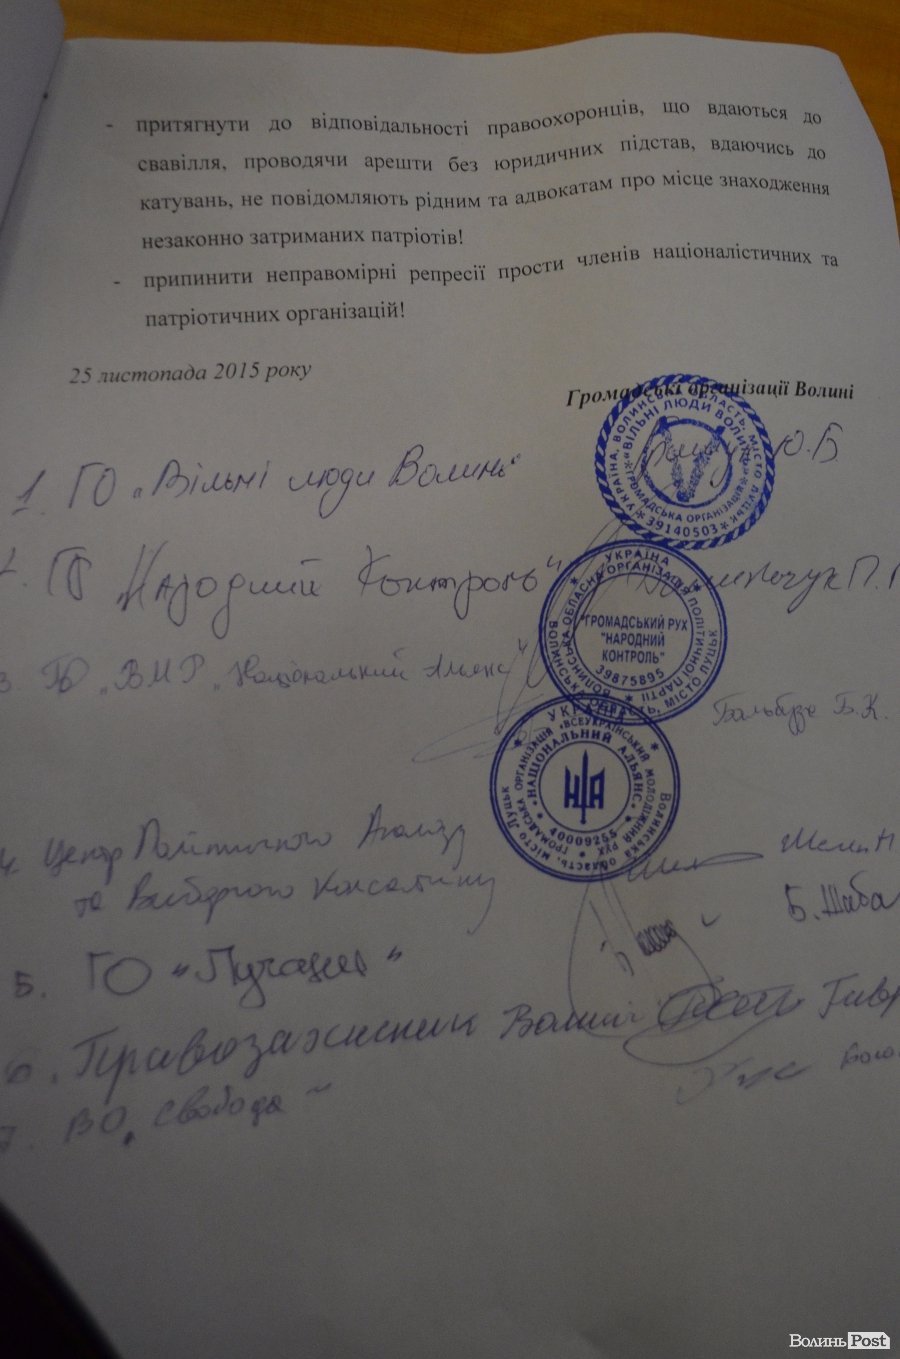 - притягнути до відповідальності правоохоронців, що вдаються до
свавілля, проводячи арешти без юридичних підстав, вдаючись до
катувань, не повідомляють рідним та адвокатам про місце знаходження
незаконно затриманих патріотів!
- припинити неправомірні репресії прости членів націоналістичних та
патріотичних організацій!
25 листопада 2015 року
Громадські організації Волині
1. ГО „Вільні люди Волинь"
УКРАЇНА, ВОЛИНСЬКА ОБЛАСТЬ, МІСТО ЛУЦЬК
«ВІЛЬНІ ЛЮДИ ВОЛИНЬ»
ГРОМАДСЬКА ОРГАНІЗАЦІЯ
39140503
„Народний Контроль"
УКРАЇНА
ВОЛИНСЬКА ОБЛАСТЬ, МІСТО ЛУЦЬК
ВОЛИНСЬКА ОБЛАСНА ОРГАНІЗАЦІЯ ПОЛІТИЧНОЇ ПАРТІЇ
"ГРОМАДСЬКИЙ РУХ
"НАРОДНИЙ
КОНТРОЛЬ"
39875895
3 ГО „ВМР „Національний Альянс"
Бальбузе Б.К.
УКРАЇНА
Волинська область, місто Луцьк
ГРОМАДСЬКА ОРГАНІЗАЦІЯ «ВСЕУКРАЇНСЬКИЙ МОЛОДІЖНИЙ РУХ
«НАЦІОНАЛЬНИЙ АЛЬЯНС»
НА
40009255
4. Центр Політичного Аналізу
та Виборчого Консалтингу
Б. Шаба
5. ГО "Лучани"
6. Правозахисник Волині
7. ВО „Свобода"
Волинь Post